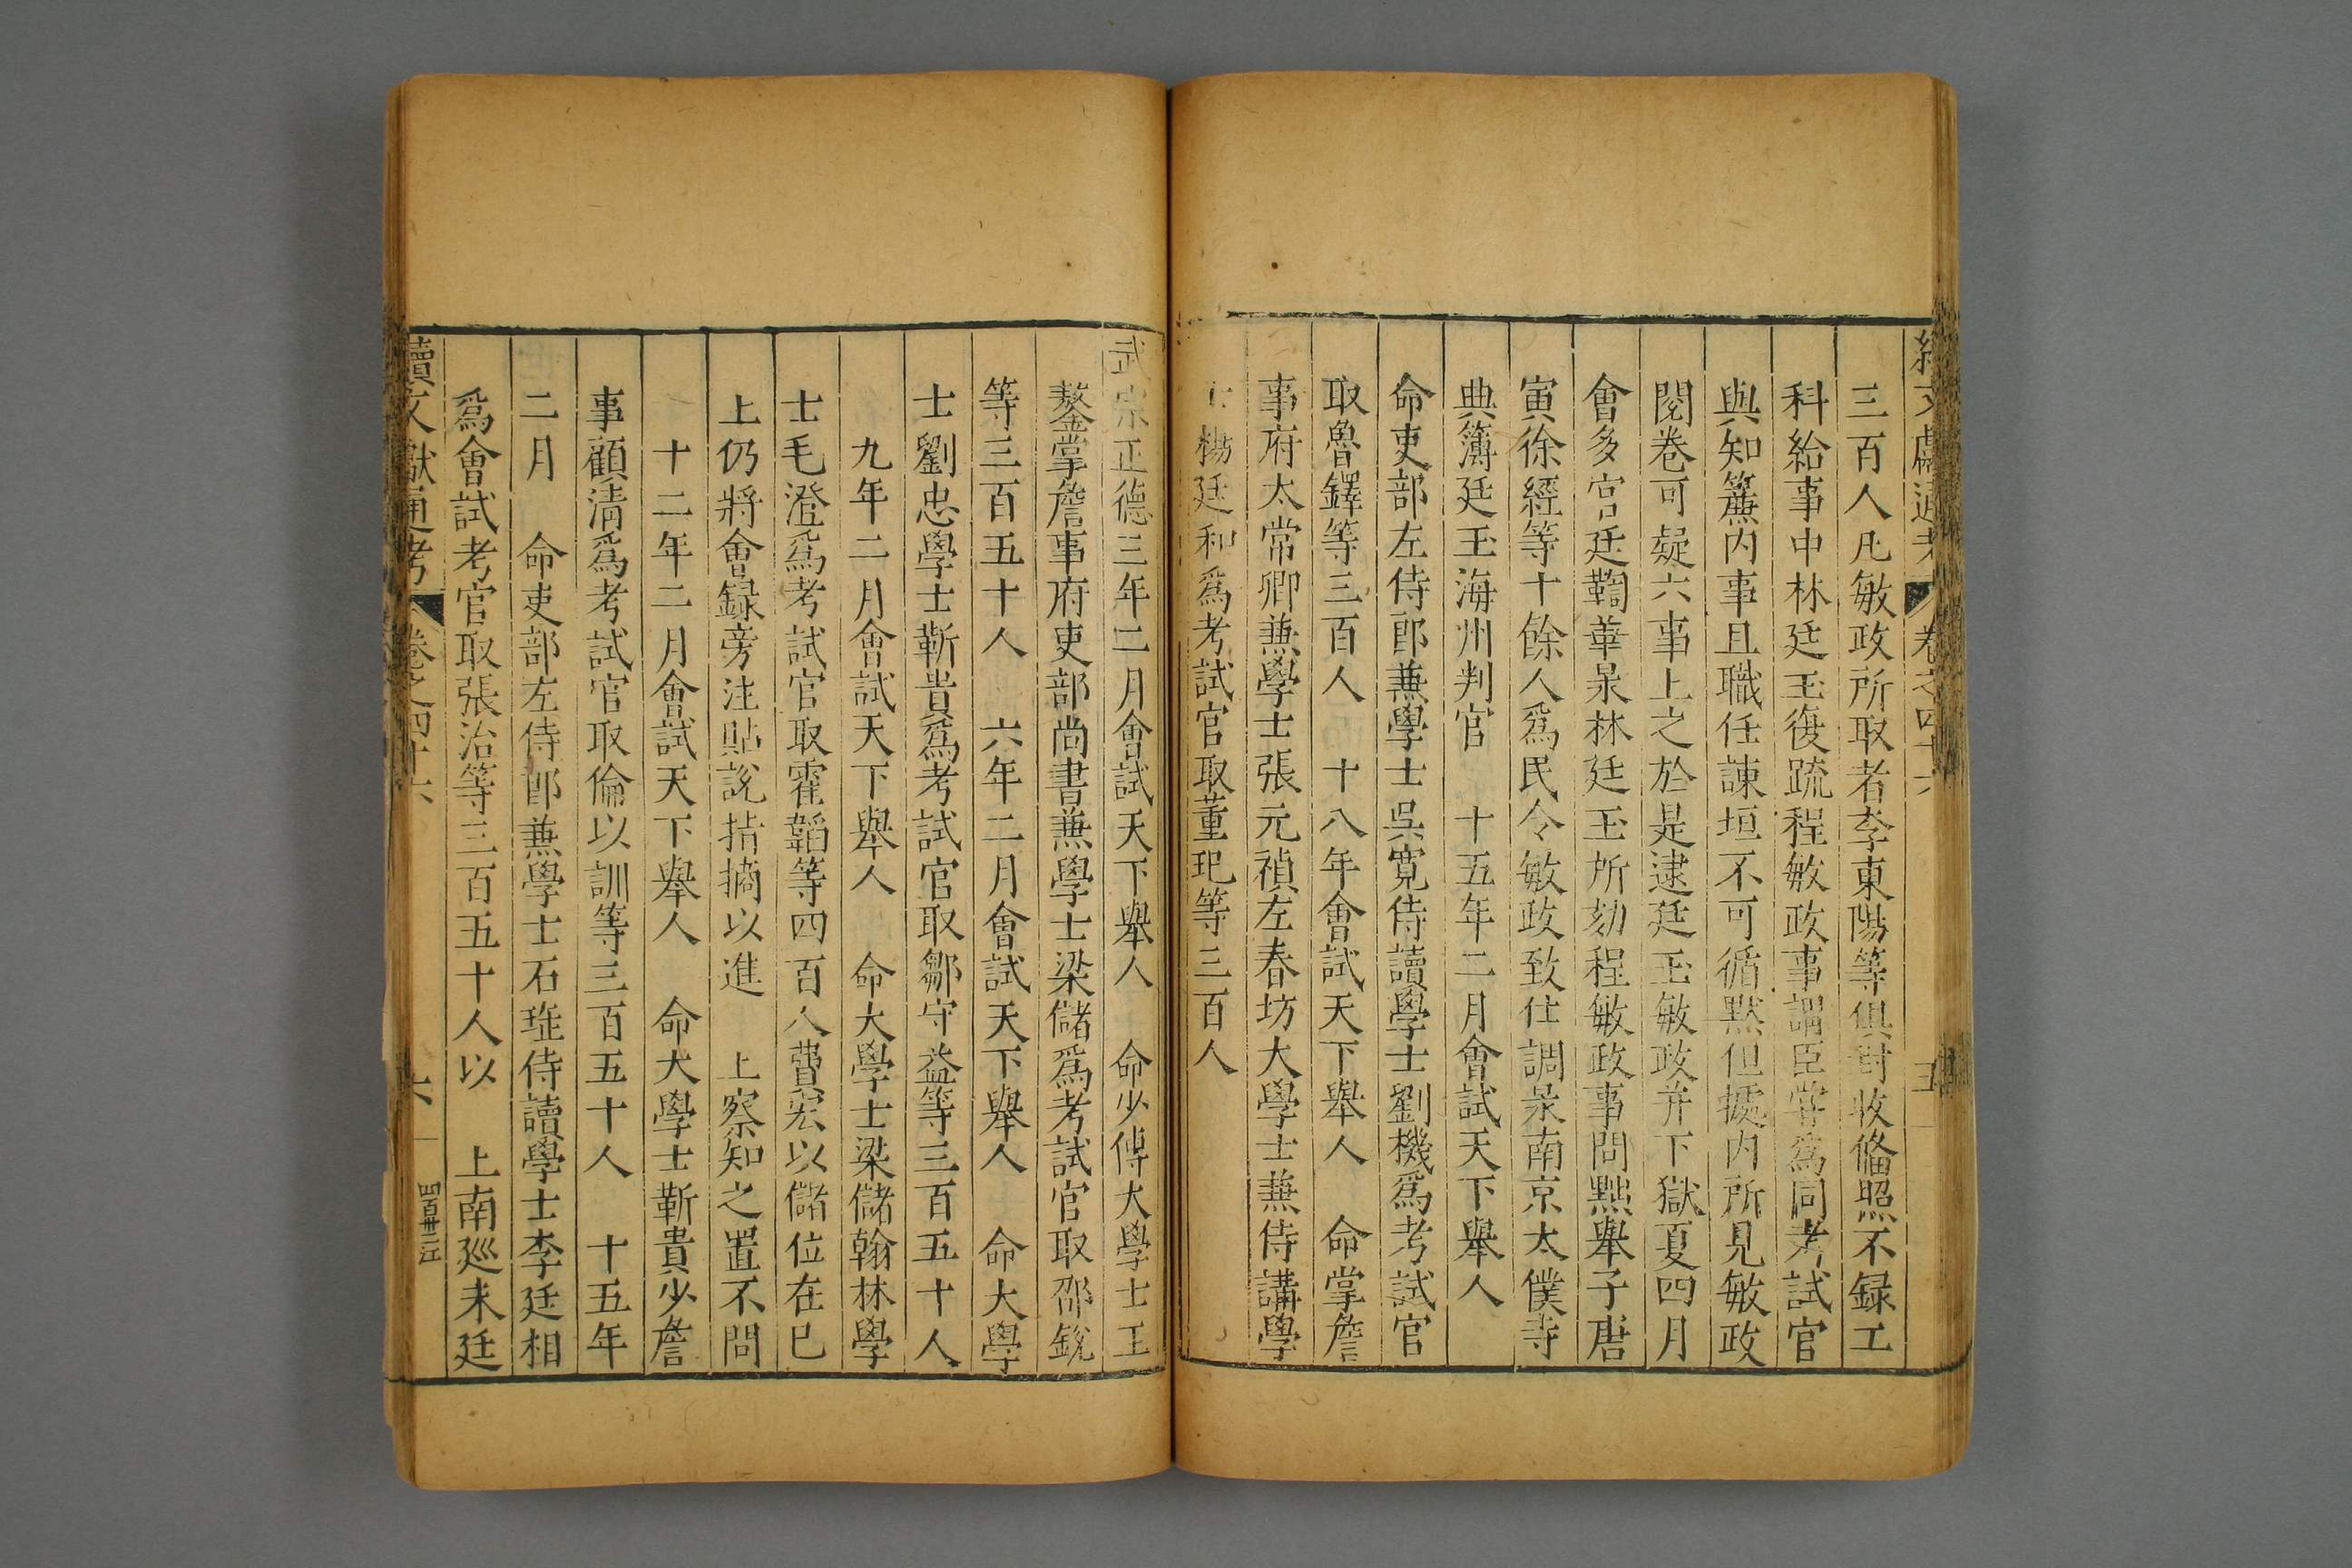 續文獻通考 卷之四十六 五
三百人凡敏政所取者李東陽等俱對收偹照不録工
科給事中林廷玉復䟽程敏政事謂臣嘗為同考試官
與知簾内事且職任諫垣不可循黙但據内所見敏政
閱卷可疑六事上之於是逮廷玉敏政并下獄夏四月
會多官廷鞫華杲林廷玉所劾程敏政事問㸃舉子唐
寅徐經等十餘人為民令敏政致仕調杲南京太僕寺
典簿廷玉海州判官 十五年二月會試天下舉人
命吏部左侍郎兼學士吳寬侍讀學士劉機爲考試官
取魯鐸等三百人 十八年會試天下舉人 命掌詹
事府太常卿兼學士張元禎左春坊大學士兼侍講學
士楊廷和爲考試官取董玘等三百人
武宗正德三年二月會試天下舉人 命少傅大學士王
鏊掌詹事府吏部尚書兼學士梁儲爲考試官取邵銳
等三百五十人 六年二月會試天下舉人 命大學
士劉忠學士靳貴爲考試官取鄒守益等三百五十人
九年二月會試天下舉人 命大學士梁儲翰林學
士毛澄爲考試官取霍韜等四百人費宏以儲位在已
上仍將會録旁注貼說指摘以進 上察知之置不問
十二年二月會試天下舉人 命大學士靳貴少詹
事顧清爲考試官取倫以訓等三百五十人 十五年
二月 命吏部左侍郎兼學士石珤侍讀學士李廷相
爲會試考官取張治等三百五十人以 上南廵未廷
續文獻通考 卷之四十六 六
四百卅二江